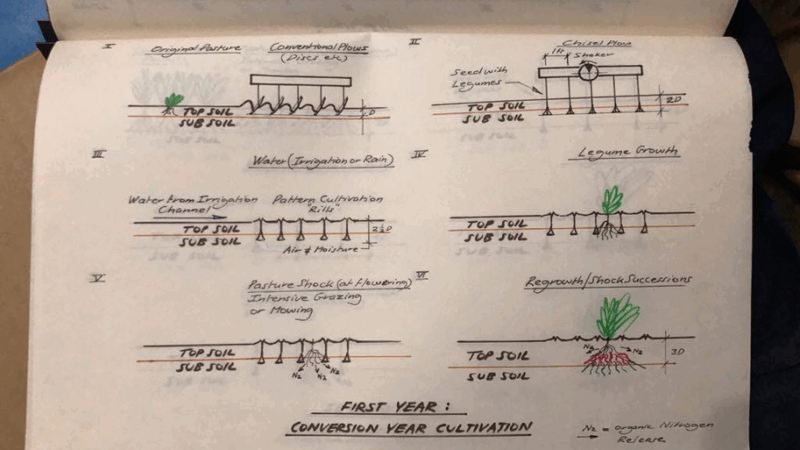 I
Original Pasture
Conventional Plows
(Discs etc)
D
TOP SOIL
SUB SOIL
II
Chisel Plow
1ft
Shaker
Seed with
Legumes
2D
TOP SOIL
SUB SOIL
III
Water (Irrigation or Rain)
Water from Irrigation
Channel
Pattern Cultivation
"Rills"
TOP SOIL
SUB SOIL
2½D
Air & Moisture
IV
Legume Growth
TOP SOIL
SUB SOIL
V
Pasture Shock (at flowering)
Intensive Grazing
or Mowing
TOP SOIL
SUB SOIL
N2 N2 N2
VI
Regrowth/Shock Successions
N2 N2
TOP SOIL
SUB SOIL
3D
FIRST YEAR :
CONVERSION YEAR CULTIVATION
N2 = organic Nitrogen
Release